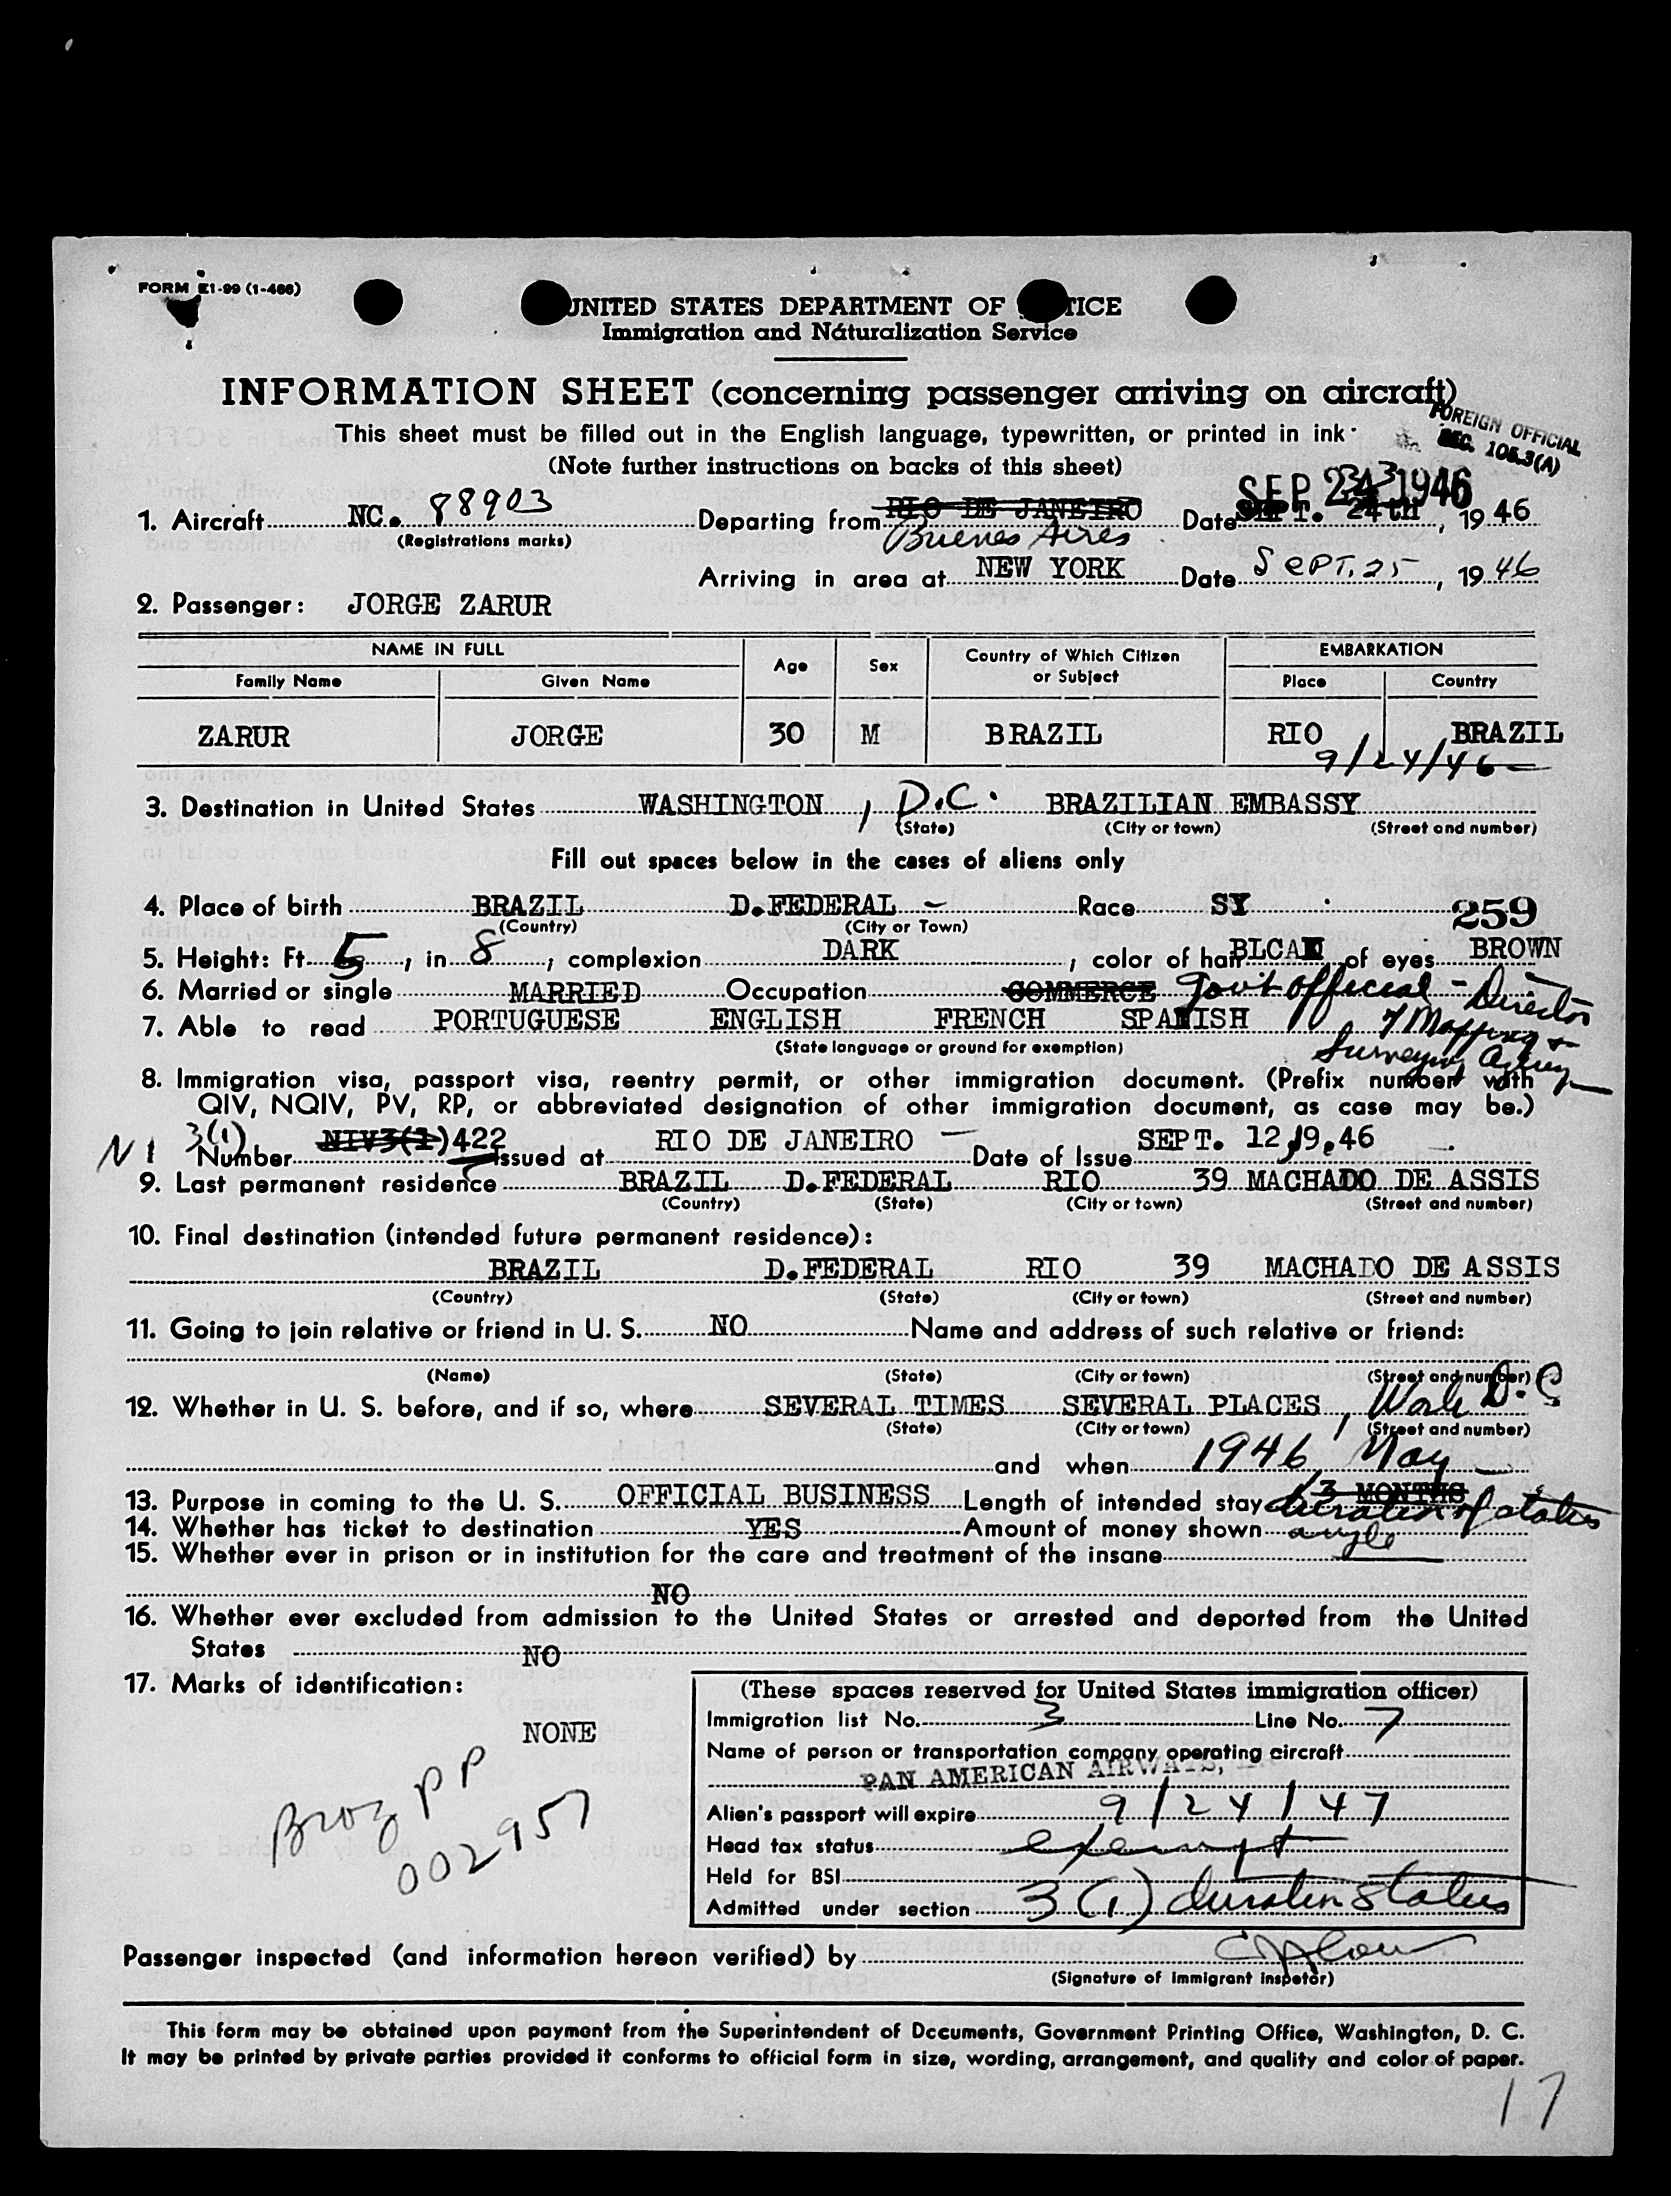 FORM E1-99 (1-466)
UNITED STATES DEPARTMENT OF TICE
Immigration and Naturalization Service
INFORMATION SHEET (concerning passenger arriving on aircraft)
FOREIGN OFFICIAL
SEC. 105.3(A)
This sheet must be filled out in the English language, typewritten, or printed in ink.
(Note further instructions on backs of this sheet)
SEP 23 1946
1. Aircraft NC. 88903 Departing from RIO DE JANEIRO Date SEPT. 24th, 19 46
(Registrations marks) Buenos Aires
Arriving in area at NEW YORK Date SEPT. 25, 19 46
2. Passenger: JORGE ZARUR
NAME IN FULL Age Sex Country of Which Citizen or Subject EMBARKATION
Family Name Given Name Place Country
ZARUR JORGE 30 M BRAZIL RIO BRAZIL
9/24/46
3. Destination in United States WASHINGTON, D.C. BRAZILIAN EMBASSY
(State) (City or town) (Street and number)
Fill out spaces below in the cases of aliens only
4. Place of birth BRAZIL D.FEDERAL - Race SY 259
(Country) (City or Town)
5. Height: Ft. 5, in. 8, complexion DARK, color of hair BLCA of eyes BROWN
6. Married or single MARRIED Occupation COMMERCE Govt official - Director
7. Able to read PORTUGUESE ENGLISH FRENCH SPANISH of Mapping &
(State language or ground for exemption) Surveying Agency
8. Immigration visa, passport visa, reentry permit, or other immigration document. (Prefix number with
QIV, NQIV, PV, RP, or abbreviated designation of other immigration document, as case may be.)
NI 3(1) Number NIV3(1)422 Issued at RIO DE JANEIRO Date of Issue SEPT. 12,19,46
9. Last permanent residence BRAZIL D.FEDERAL RIO 39 MACHADO DE ASSIS
(Country) (State) (City or town) (Street and number)
10. Final destination (intended future permanent residence):
BRAZIL D.FEDERAL RIO 39 MACHADO DE ASSIS
(Country) (State) (City or town) (Street and number)
11. Going to join relative or friend in U. S. NO Name and address of such relative or friend:
(Name) (State) (City or town) (Street and number)
12. Whether in U. S. before, and if so, where SEVERAL TIMES SEVERAL PLACES, Wash D.C
(State) (City or town) (Street and number)
and when 1946, May
13. Purpose in coming to the U. S. OFFICIAL BUSINESS Length of intended stay 3 MONTHS duration of status
14. Whether has ticket to destination YES Amount of money shown ample
15. Whether ever in prison or in institution for the care and treatment of the insane
NO
16. Whether ever excluded from admission to the United States or arrested and deported from the United
States NO
17. Marks of identification:
NONE
Braz PP
002957
(These spaces reserved for United States immigration officer)
Immigration list No. 3 Line No. 7
Name of person or transportation company operating aircraft
PAN AMERICAN AIRWAYS,
Alien's passport will expire 9/24/47
Head tax status exempt
Held for BSI
Admitted under section 3 (1) duration status
Passenger inspected (and information hereon verified) by
(Signature of Immigrant inspetor)
This form may be obtained upon payment from the Superintendent of Documents, Government Printing Office, Washington, D. C.
It may be printed by private parties provided it conforms to official form in size, wording, arrangement, and quality and color of paper.
17